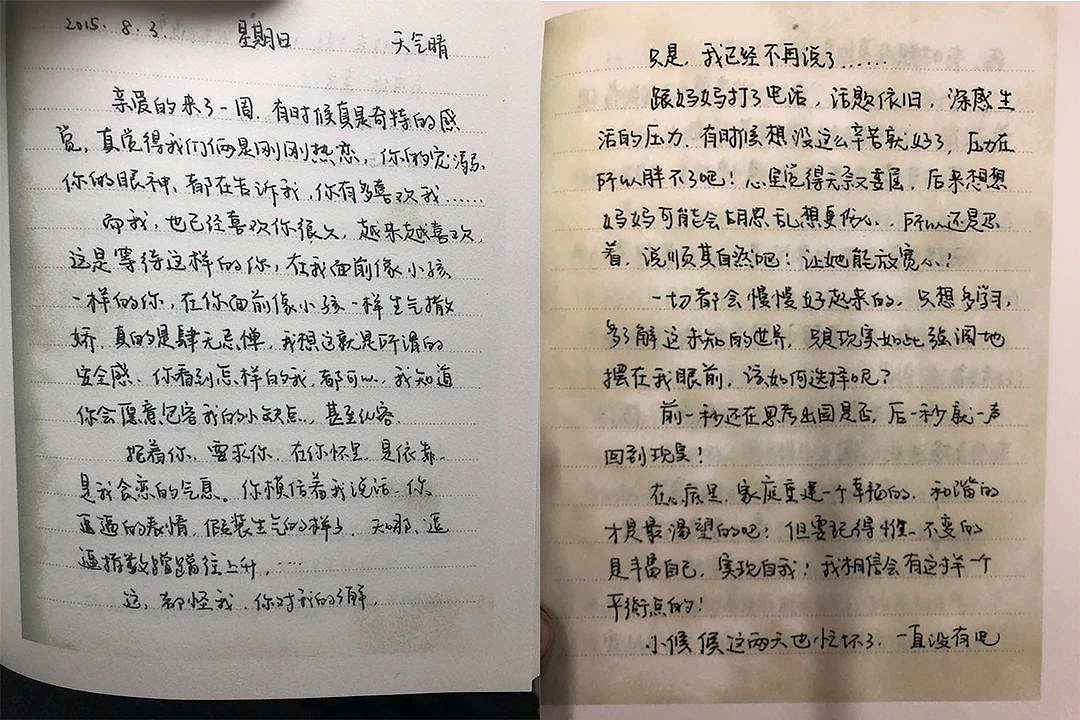 2015. 8. 3. 星期日 天气晴
亲爱的来了一周，有时候真是奇特的感
觉，真觉得我们俩是刚刚热恋，你的宠溺、
你的眼神、都在告诉我，你有多喜欢我……
而我，也已经喜欢你很久，越来越喜欢，
这是等待这样的你，在我面前像小孩
一样的你，在你面前像小孩一样生气撒
娇，真的是肆无忌惮，我想这就是所谓的
安全感，你看到怎样的我，都可以，我知道
你会愿意包容我的小缺点，甚至纵容。
抱着你，要求你，在你怀里，是依靠，
是我贪恋的气息。你模仿着我说话，你
逗逼的表情，假装生气的样子，天哪，逗
逼指数蹭蹭往上升，…
这，都怪我，你对我的了解，
只是，我已经不再说了……
跟妈妈打了电话，话题依旧，深感生
活的压力，有时候想没这么辛苦就好了，压力在
所以胖不了吧！心里觉得无奈又委屈，后来想想
妈妈可能会胡思乱想更伤心，所以还是忍
着，说顺其自然吧！让她能放宽心！
一切都会慢慢好起来的，只想多学习，
多了解这未知的世界，只是现实如此强调地
摆在我眼前，该如何选择呢？
前一秒还在思考出国是否，后一秒就一声
回到现实！
在心底里，家庭重建一个幸福的、和谐的
才是最渴望的吧！但要记得惟一不变的
是丰富自己，实现自我！我相信会有这样一个
平衡点的！
小候候这两天也忙坏了，一直没有吃